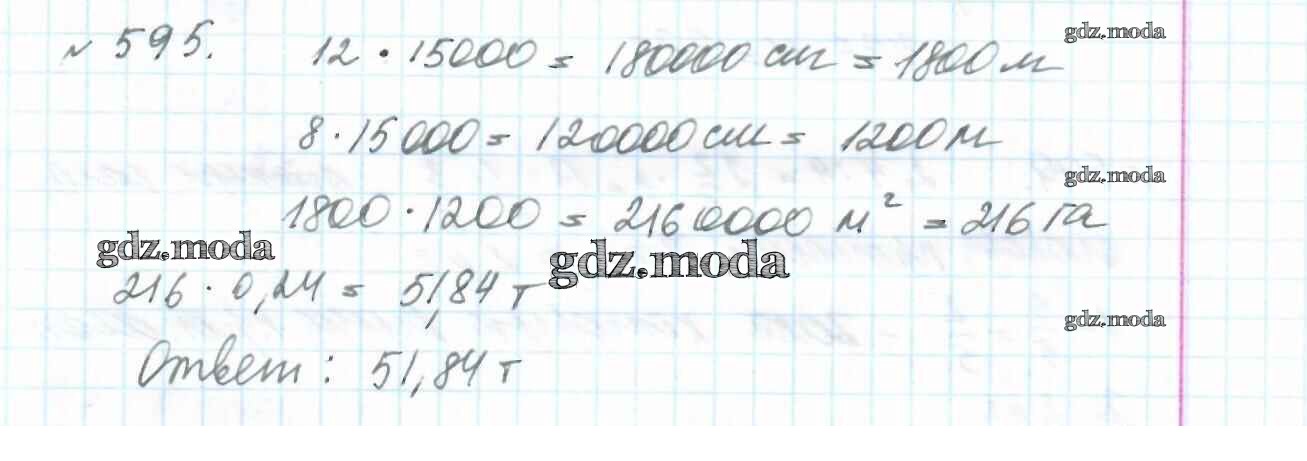 № 595. 12 · 15000 = 180000 см = 1800 м
gdz.moda
8 · 15000 = 120000 см = 1200 м
gdz.moda
1800 · 1200 = 2160000 м² = 216 га
gdz.moda
gdz.moda
216 · 0,24 = 51,84 т
gdz.moda
Ответ: 51,84 т